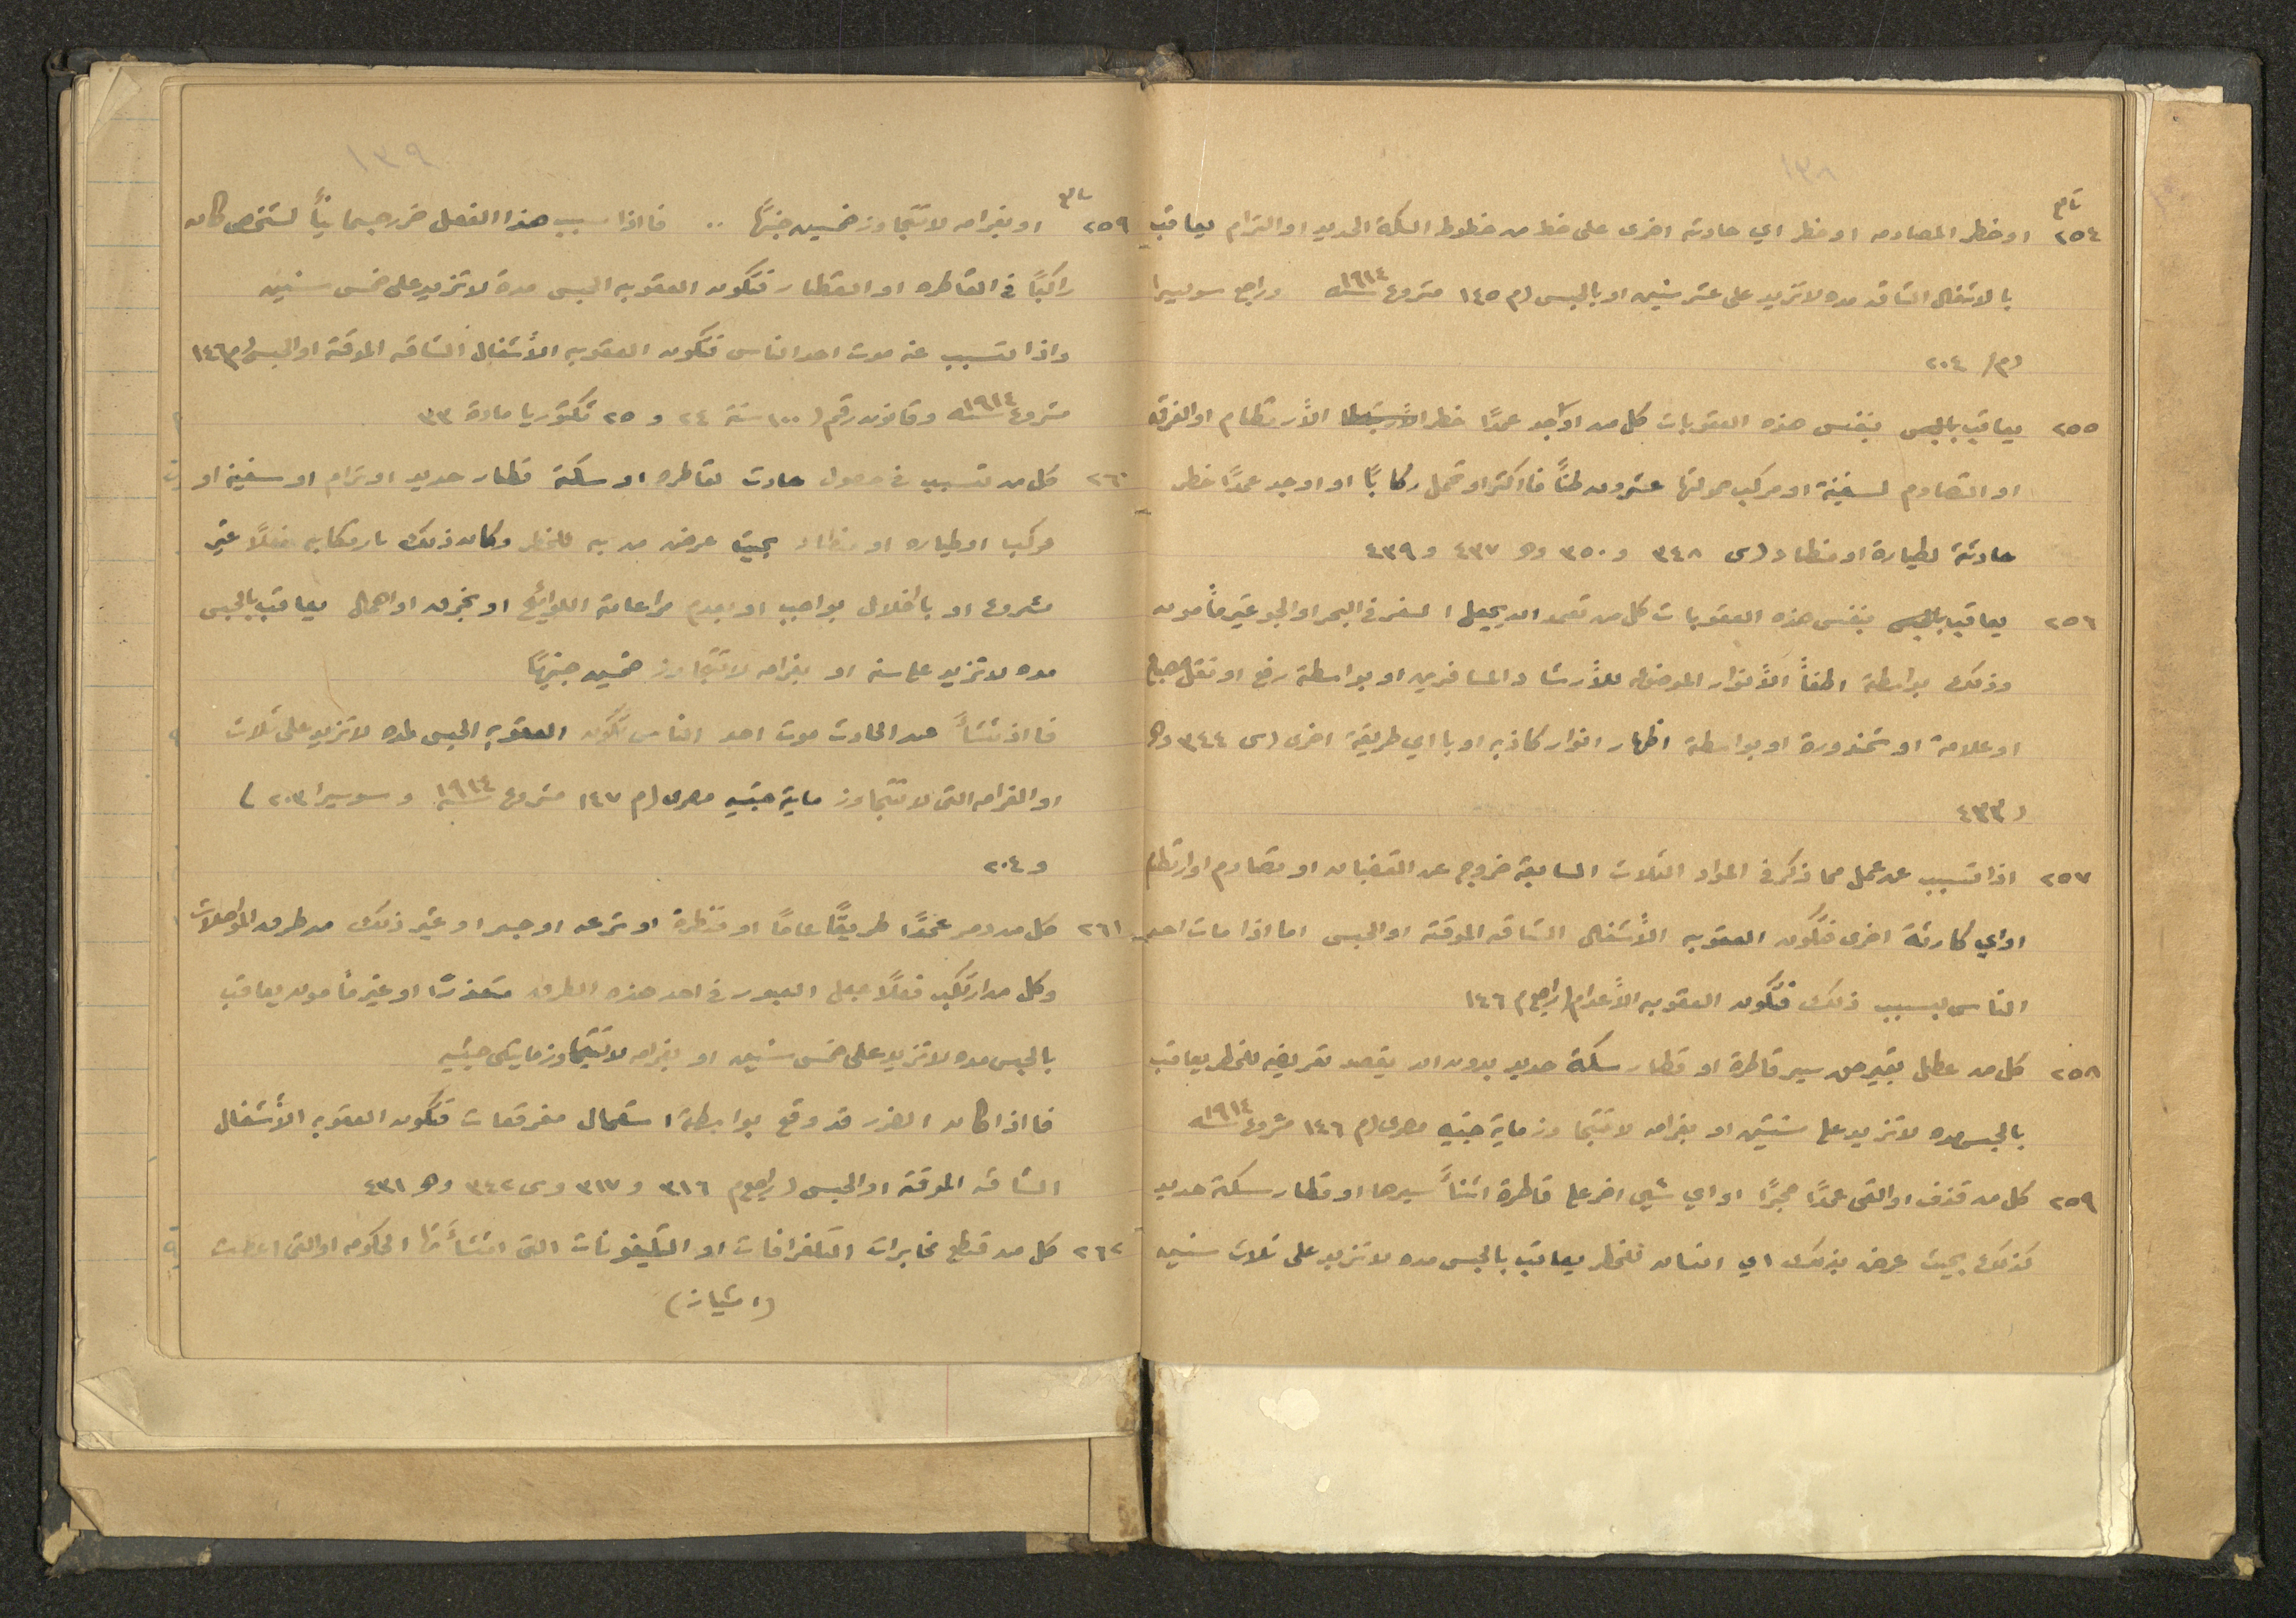 ١٣٨
تابع
٢٥٤ او خطر المصادمه او خطر اي حادثه اخرى على خط من خطوط السكة الحديد او الترام يعاقب
بالاشغال الشاقه مده لا تزيد على عشر سنين او بالحبس (م ١٤٥ مشروع سنة ١٩١٤ وراجع سويسرا
(م/ ٢٠٤
٢٥٥ يعاقب بالحبس بنفس هذه العقوبات كل من اوجد عمدًا خطر الأرتطام او الغرق
او التصادم لسفينة او مركب حمولتها عشرون طنًا فاكثر او تحمل ركابًا او اوجد عمدًا خطر
حادثة لطيارة او منطاد (س ٣٤٨ و ٣٥٠ وھ ٤٣٧ و ٤٣٩
٢٥٦ يعاقب بالحبس بنفس هذه العقوبات كل من تعمد ان يجعل السفر في البحر او الجو غير مأمون
وذلك بواسطة اطفأ الأنوار الموضوعه للأرشاد المسافرين او بواسطة رفع او نقل مصباح
او علامة او شمندورة او بواسطة اظهار انوار كاذبه او باي طريقة اخرى (س ٣٤٤ وھ
(٤٣٣
٢٥٧ اذا تسبب عن عمل مما ذكر في المواد الثلاث السابقة خروج عن القضبان او تصادم او ارتطام
او اي كارثة اخرى فتكون العقوبه الأشغال الشاقه الموقتة او الحبس اما اذا مات احد
الناس بسبب ذلك فتكون العقوبه الأعدام (راجع م ١٤٦
٢٥٨ كل من عطل بغير حق سير قاطرة او قطار سكة حديد بدون ان يقصد تعريضه للخطر يعاقب
بالحبس مده لا تزيد على سنتين او بغرامه لا تتجاوز ماية جنيه مصرى (م ١٤٦ مشروع سنة ١٩١٤
٢٥٩ كل من قذف او القى عمدًا حجرًا او اي شيى اخر على قاطرة اثنأ سيرها او قطار سكة حديد
كذلك بحيث عرض بذلك اي انسان للخطر يعاقب بالحبس مده لا تزيد على ثلاث سنين
١٣٩
تابع
٢٥٩ او بغرامه لا تتجاوز خمسين جنيهًا .. فاذا سبب هذا الفعل ضرر جسمانيًا لشخص كان
راكبًا في القاطره او القطار فتكون العقوبه الحبس مدة لا تزيد على خمس سنين
واذا تسبب عنه موت احد الناس فتكون العقوبه الأشغال الشاقه الموقتة او الحبس (م ١٤٦
مشروع سنة ١٩١٤ وقانون رقم (١٠٠ سنة ٢٤ و ٢٥ فكتوريا مادة ٣٣
٢٦٠ كل من تسبب في حصول حادث لقاطره او سكة قطار حديد او ترام او سفينه او
مركب او طياره او منطاد بحيث عرض من به للخطر وكان ذلك بارتكابه فعلًا غير
مشروع او باخلال بواجب او بعدم مراعاة اللوائح او بخرق او اهمال يعاقب بالحبس
مده لا تزيد على سنه او بغرامه لا تتجاوز خمسين جنيهًا
فااذ نشأ عن الحادث موت احد الناس تكون العقوبه الحبس لمده لا تزيد على ثلاث
او الغرامه التى لا تتجاوز ماية جنيه مصرى (م ١٤٧ مشروع سنة ١٩١٤ و سويسرا ٢٠٣)
و ٢٠٤
٢٦١ كل من دمر عمدًا طريقًا عامًا او قنطرة او ترعه او جسر او غير ذلك من طرق المواصلات
وكل من ارتكب فعلًا جعل العبور في احد هذه الطرق متعذرًا او غير مأمون يعاقب
بالحبس مده لا تزيد على خمس سنين او بغرامه لا تتجاوز مايتى جنيه
فااذا كان الضرر قد وقع بواسطة استعمال مفرقعات فتكون العقوبه الأشغال
الشاقه الموقتة او الحبس (راجع م ٣١٦ و ٣١٧ وس ٣٤٢ وھ ٤٣١
٢٦٢ كل من قطع مخابرات التلغرافات او التليفونات التى انشأتها الحكومه او التى اعطت
(امتياز)